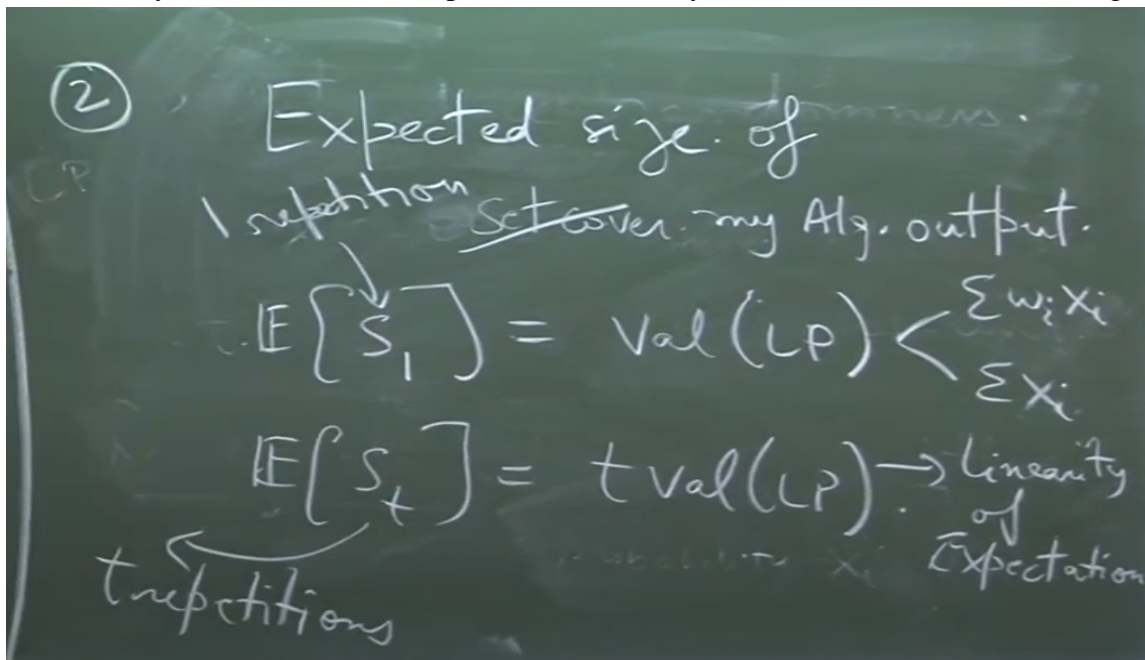 ② Expected size of
1 repetition Set cover my Alg. output.
E[S₁] = Val(LP) < Σwᵢxᵢ
Σxᵢ
E[Sₜ] = t val(LP). → linearity
of
Expectation
t repetitions